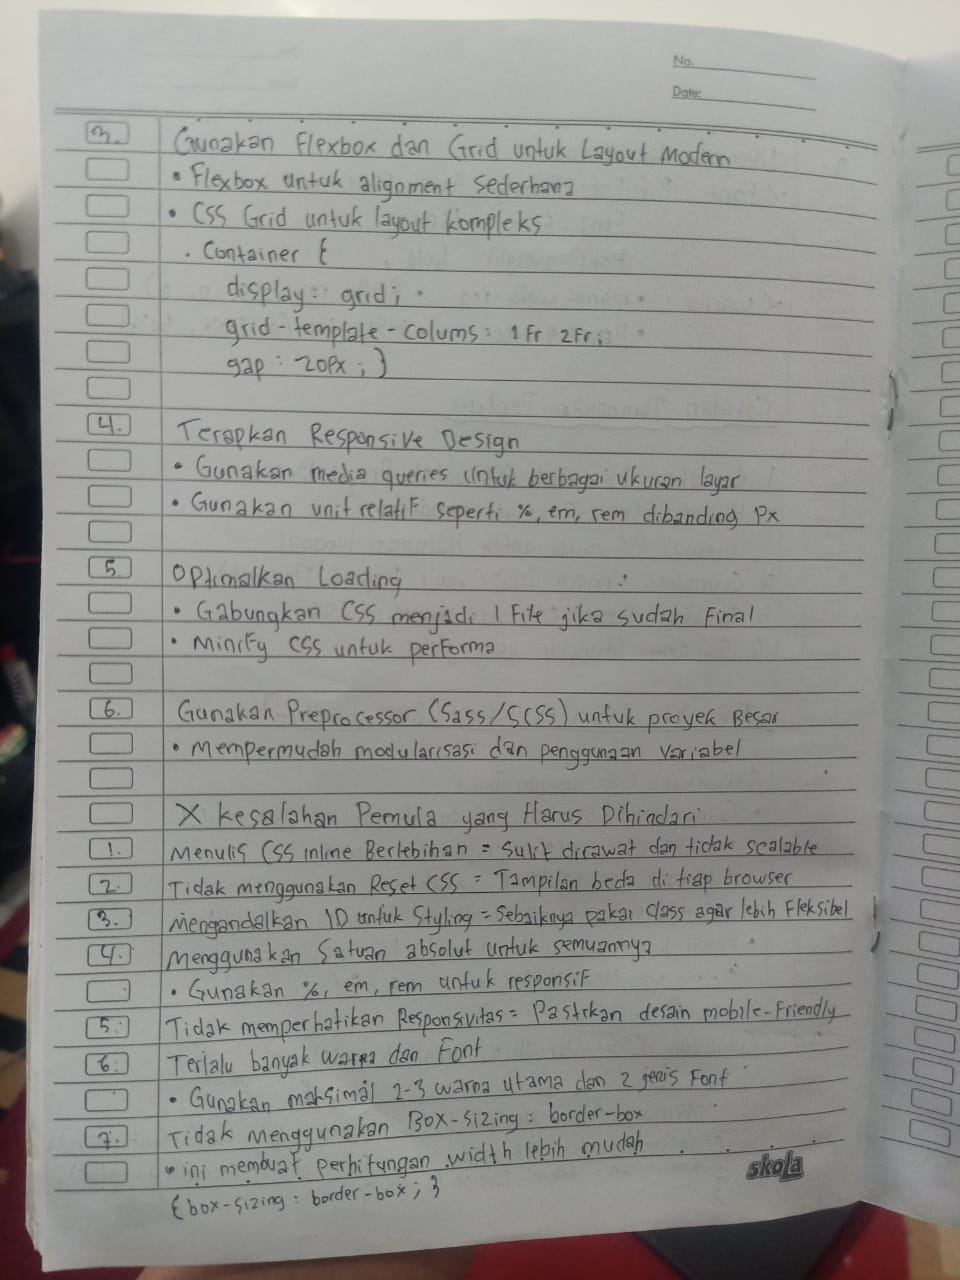 No.
Date:
3. Gunakan Flexbox dan Grid untuk Layout Modern
• Flexbox untuk alignment sederhana
• CSS Grid untuk layout kompleks
. Container {
display: grid;
grid-template-colums: 1 Fr 2 Fr;
gap: 20px; }
4. Terapkan Responsive Design
• Gunakan media queries untuk berbagai ukuran layar
• Gunakan unit relatif seperti %, em, rem dibanding Px
5. Optimalkan Loading
• Gabungkan CSS menjadi 1 File jika sudah Final
• Minify CSS untuk performa
6. Gunakan Preprocessor (Sass/SCSS) untuk proyek Besar
• Mempermudah modularisasi dan penggunaan variabel
X Kesalahan Pemula yang Harus Dihindari
1. Menulis CSS inline Berlebihan = Sulit dirawat dan tidak scalable
2. Tidak menggunakan Reset CSS = Tampilan beda di tiap browser
3. Mengandalkan ID untuk Styling = Sebaiknya pakai class agar lebih Fleksibel
4. Menggunakan Satuan absolut untuk semuannya
• Gunakan %, em, rem untuk responsif
5. Tidak memperhatikan Responsvitas = Pastikan desain mobile-Friendly
6. Terlalu banyak warna dan Font
• Gunakan maksimal 2-3 warna utama dan 2 jenis Font
7. Tidak Menggunakan Box-Sizing: border-box
• ini membuat perhitungan width lebih mudah
skola
{box-sizing: border-box; }